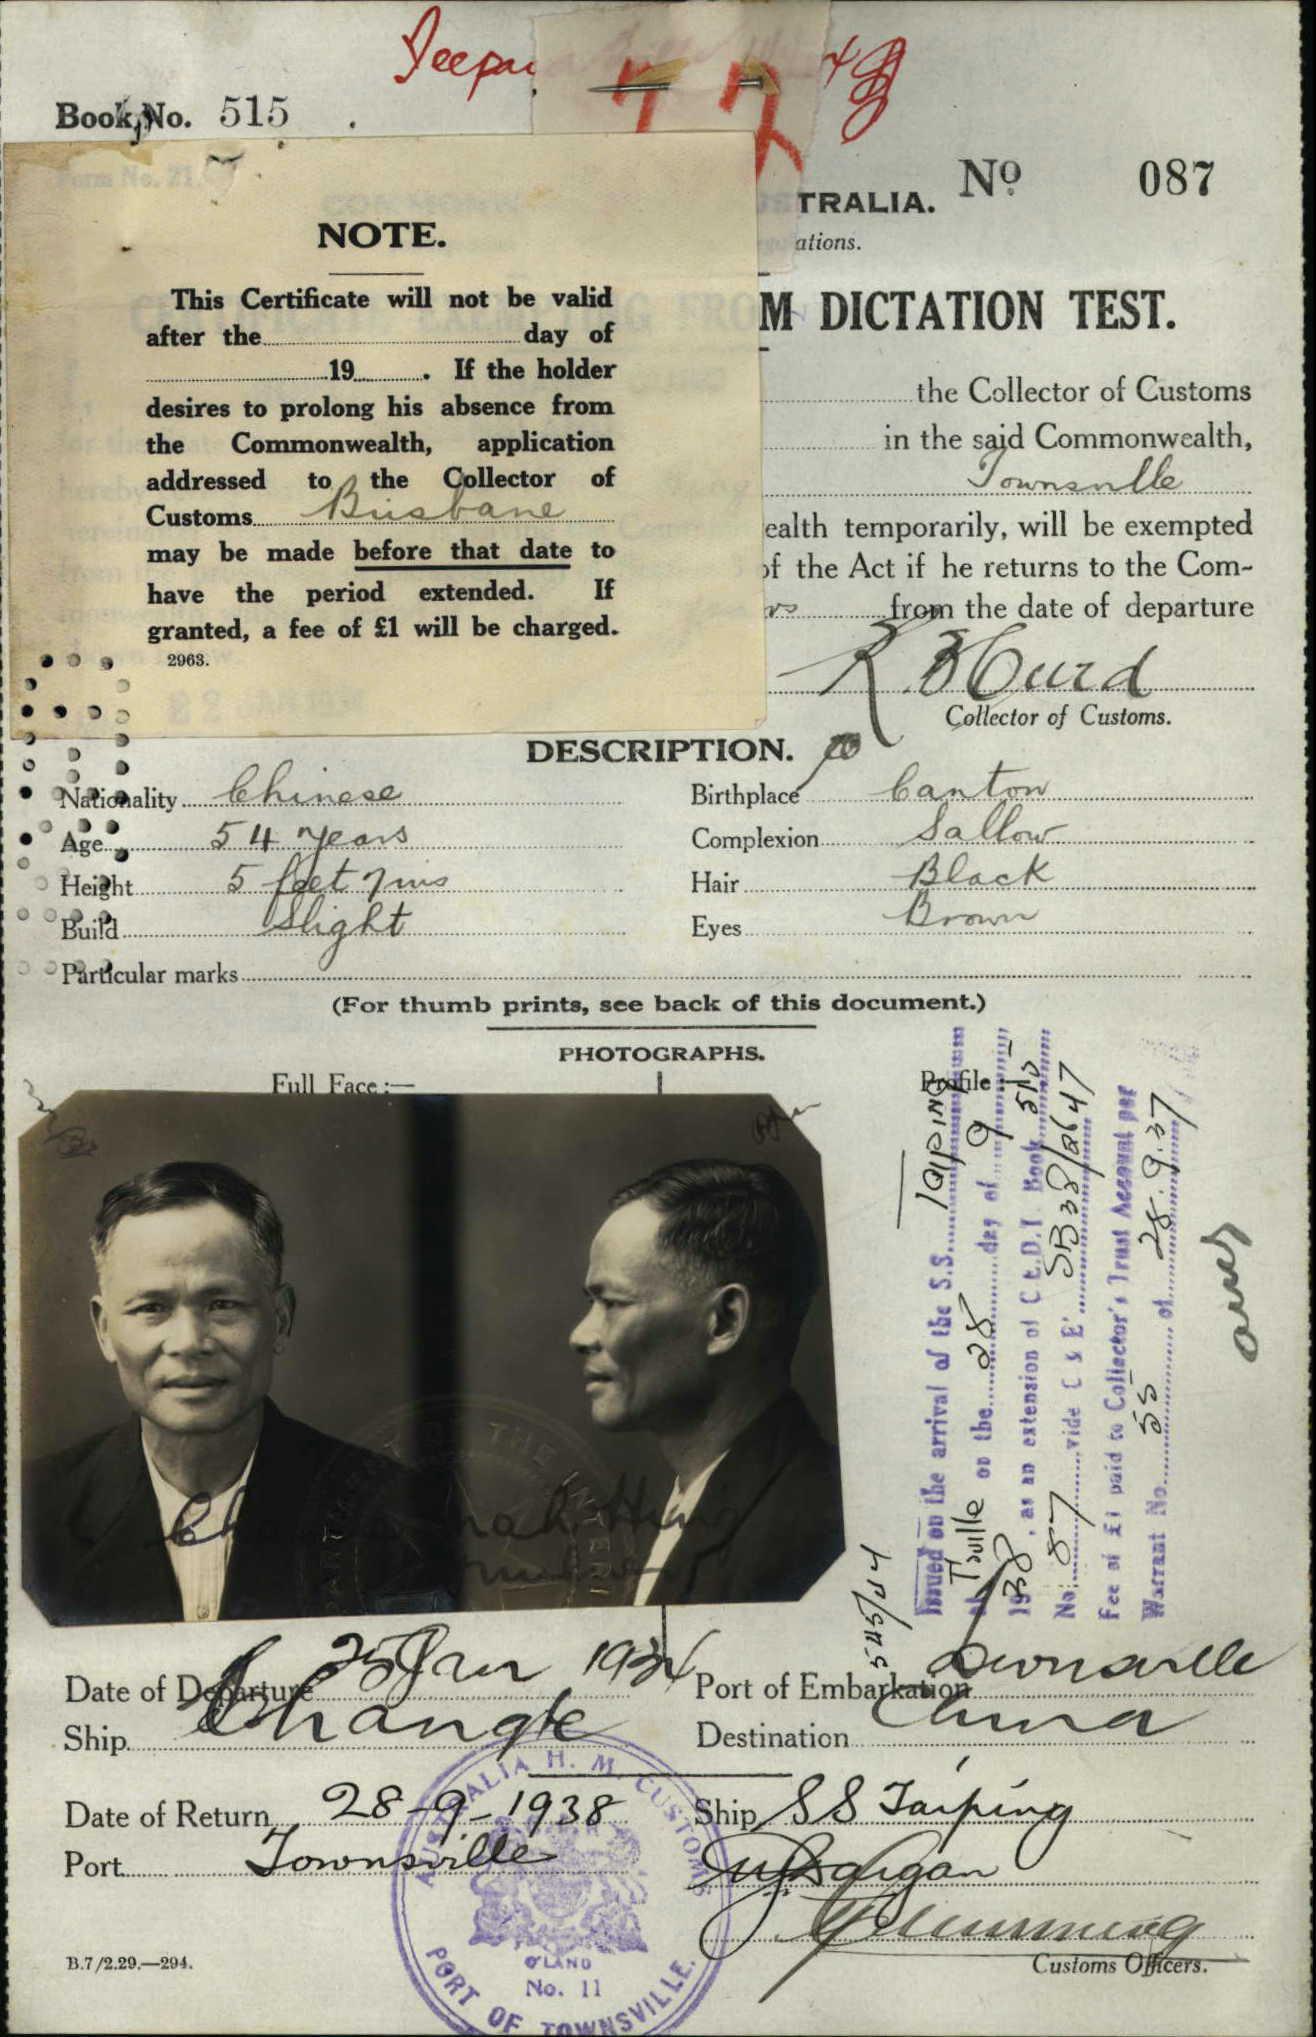 Book No. 515
77
No 087
TRALIA.
ations.
NOTE.
This Certificate will not be valid
after the day of
19 . If the holder
desires to prolong his absence from
the Commonwealth, application
addressed to the Collector of
Customs Brisbane
may be made before that date to
have the period extended. If
granted, a fee of £1 will be charged.
2963.
Form No. 21.
M DICTATION TEST.
the Collector of Customs
in the said Commonwealth,
Townsville
ealth temporarily, will be exempted
of the Act if he returns to the Com-
rs from the date of departure
Collector of Customs.
DESCRIPTION.
Nationality Chinese
Birthplace Canton
Age 54 years
Complexion Sallow
Height 5 feet 7 ins
Hair Black
Build Slight
Eyes Brown
Particular marks
(For thumb prints, see back of this document.)
PHOTOGRAPHS.
Full Face:—
Profile
Issued on the arrival of the S.S. TAIPING
at T'ville on the 28 day of 9
1938, as an extension of C.E.D.T. Book 515
No. 87 vide C & E'. SB38/2647
Fee of £1 paid to Collector's Trust Account per
Warrant No. 55 of 28.9.37
Date of Departure 25 Jan 1934
Port of Embarkation Townsville
Ship Changte
Destination China
Date of Return 28-9-1938
Ship SS Taiping
Port Townsville
Customs Officers.
AUSTRALIA H. M. CUSTOMS
Q'LAND
No. 11
PORT OF TOWNSVILLE.
B.7/2.29.—294.